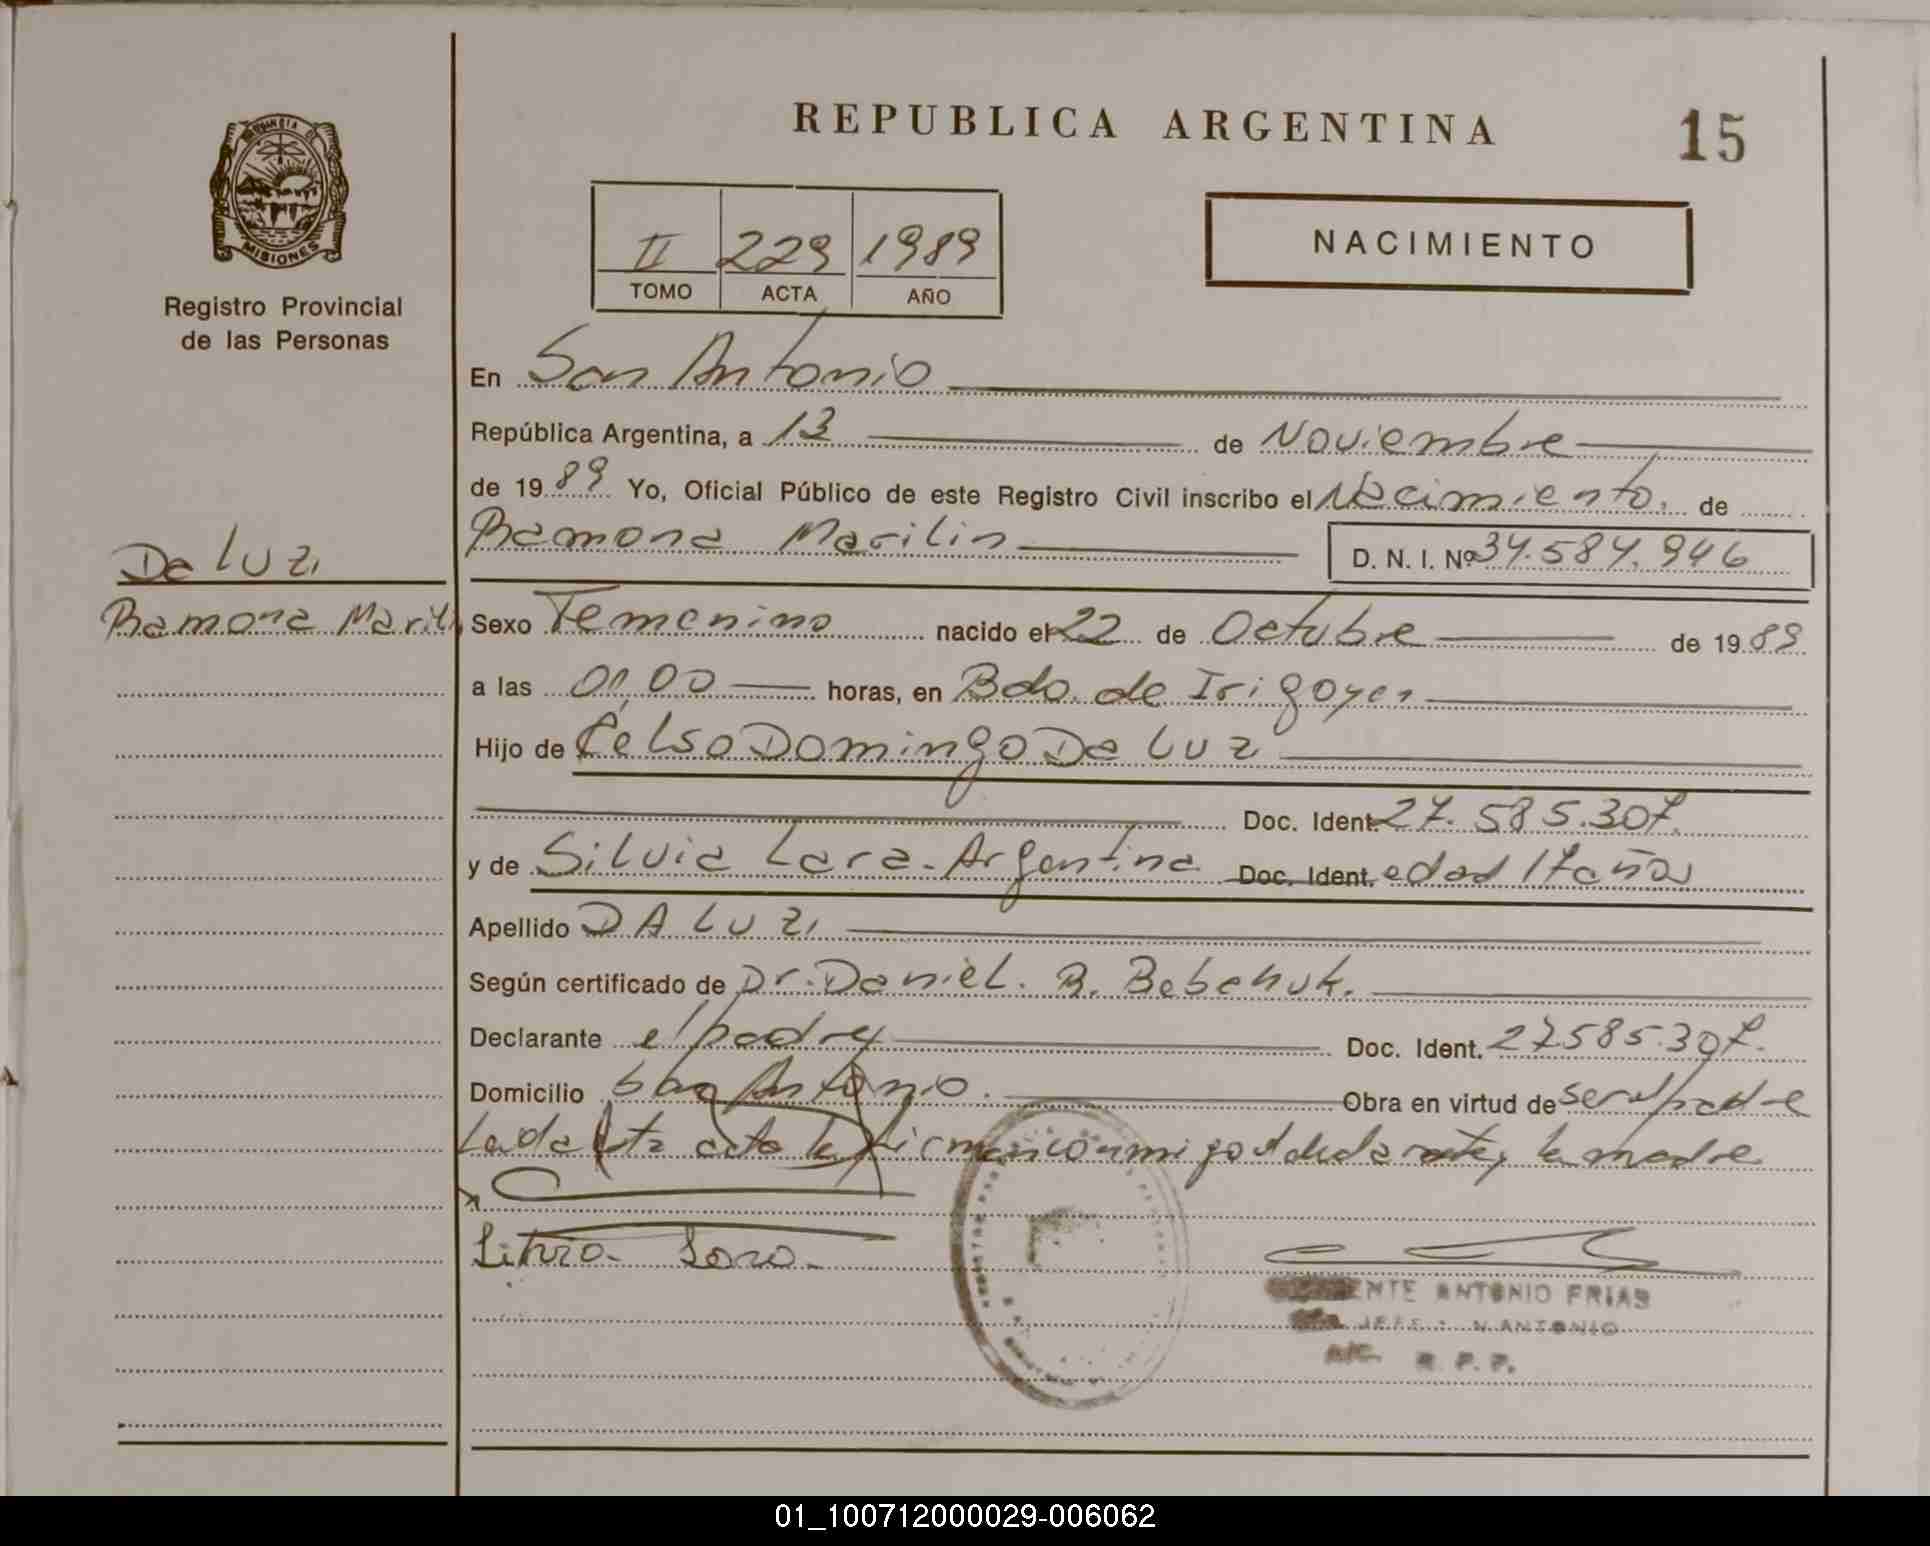 REPUBLICA ARGENTINA
15
PROVINCIA DE
MISIONES
Registro Provincial
de las Personas
II 229 1989
TOMO ACTA AÑO
NACIMIENTO
En San Antonio
República Argentina, a 13 de Noviembre
de 19 89 Yo, Oficial Público de este Registro Civil inscribo el Nacimiento. de
Ramona Marilin D. N. I. Nº 34.584.946
Da Luz
Ramona Marili
Sexo Femenino nacido el 22 de Octubre de 19 89
a las 01,00 horas, en Bdo. de Irigoyen
Hijo de Celso Domingo Da Luz
Doc. Ident. 27.585.307.
y de Silvia Lara - Argentina Doc. Ident. edad 17 años
Apellido DA LUZ
Según certificado de Dr. Daniel. R. Bobchuk.
Declarante el padre Doc. Ident. 27585.307.
Domicilio San Antonio. Obra en virtud de ser el padre
Leída esta acta la firman conmigo el declarante y la madre
Silvia - Lara -
ENTE ANTONIO FRIAS
JEFE N ANTONIO
R. P. P.
01_100712000029-006062